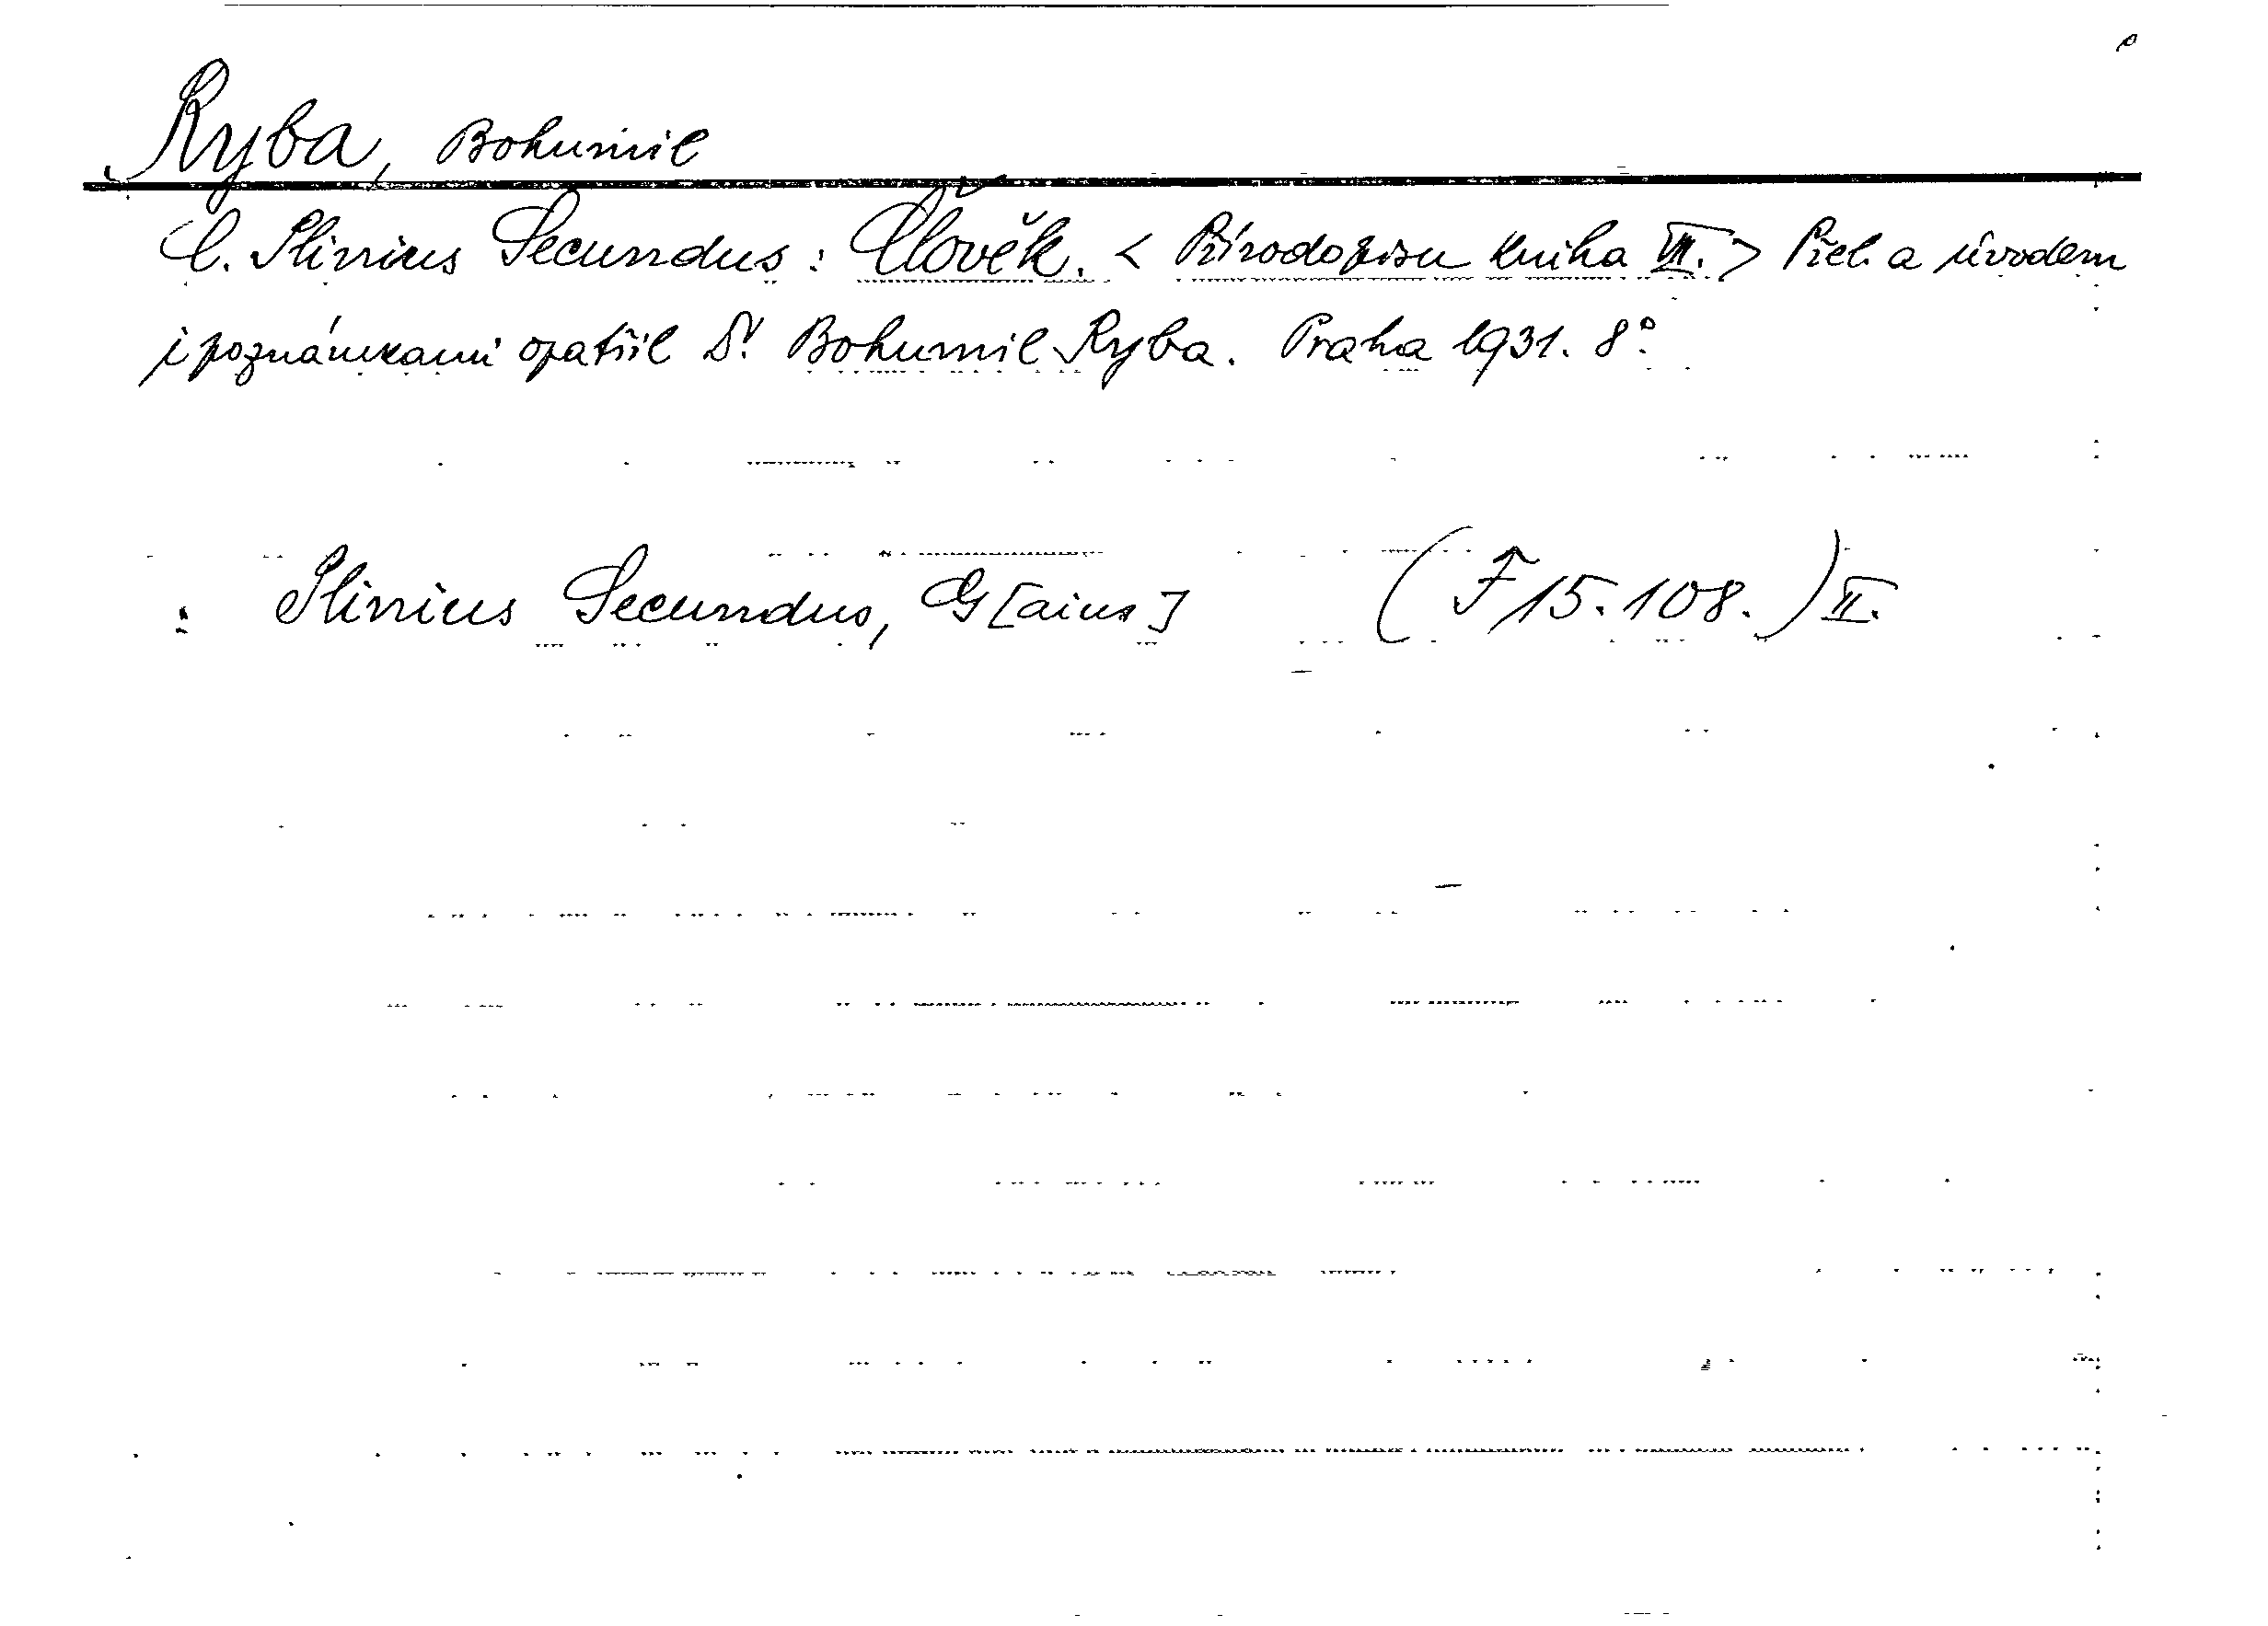 Ryba, Bohumil
C. Plinius Secundus: Člověk. < Přírodopisu kniha VII. > Přel. a úvodem
i poznámkami opatřil Dr. Bohumil Ryba. Praha 1931. 8°.
: Plinius Secundus, G[aius] (F 15.108.) II.